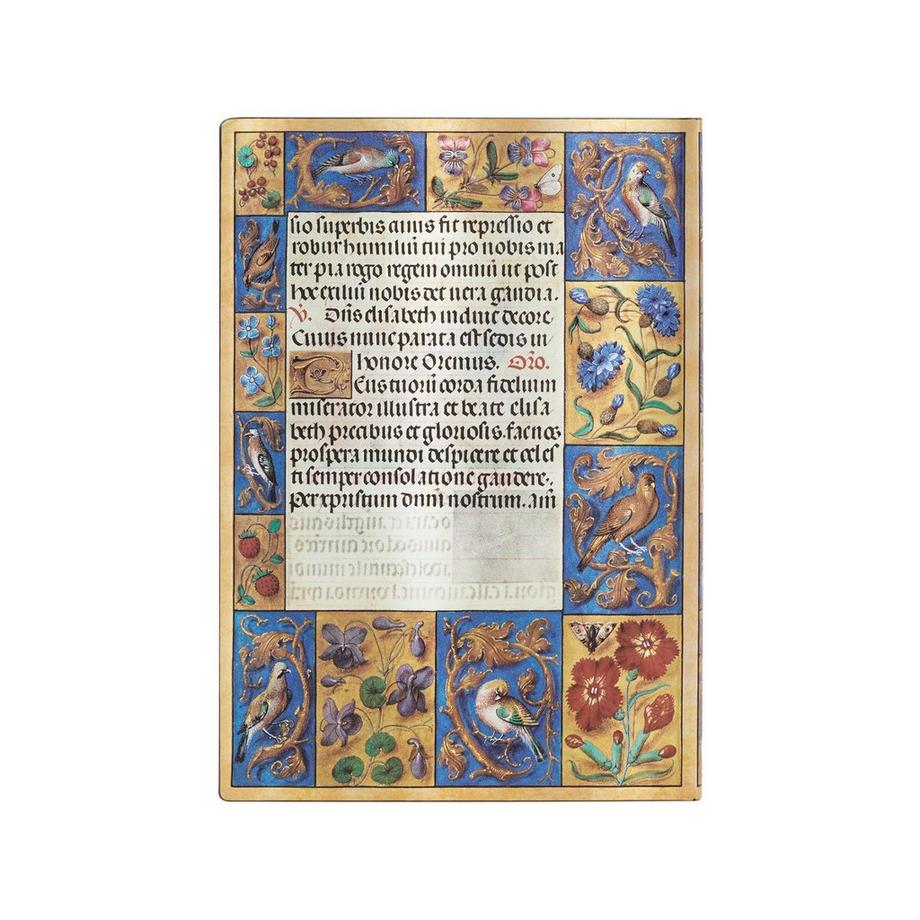 sio superbis cuius fit repressio et
robur humiliū tui pro nobis ma
ter pia rogo regem omniū ut post
hoc exiliū nobis det uera gaudia.
V. Dn̄s elisabeth induit decore.
Cuius nunc parata est sedis in
honore Oremus. Oro.
Deus tuorū corda fidelium
miserator illustra et beate elisa
beth precibus et gloriosis. fac nos
prospera mundi despicere et cel es
ti semper consolatione gaudere.
Per xpristum dnm̄ nostrum. Am̄